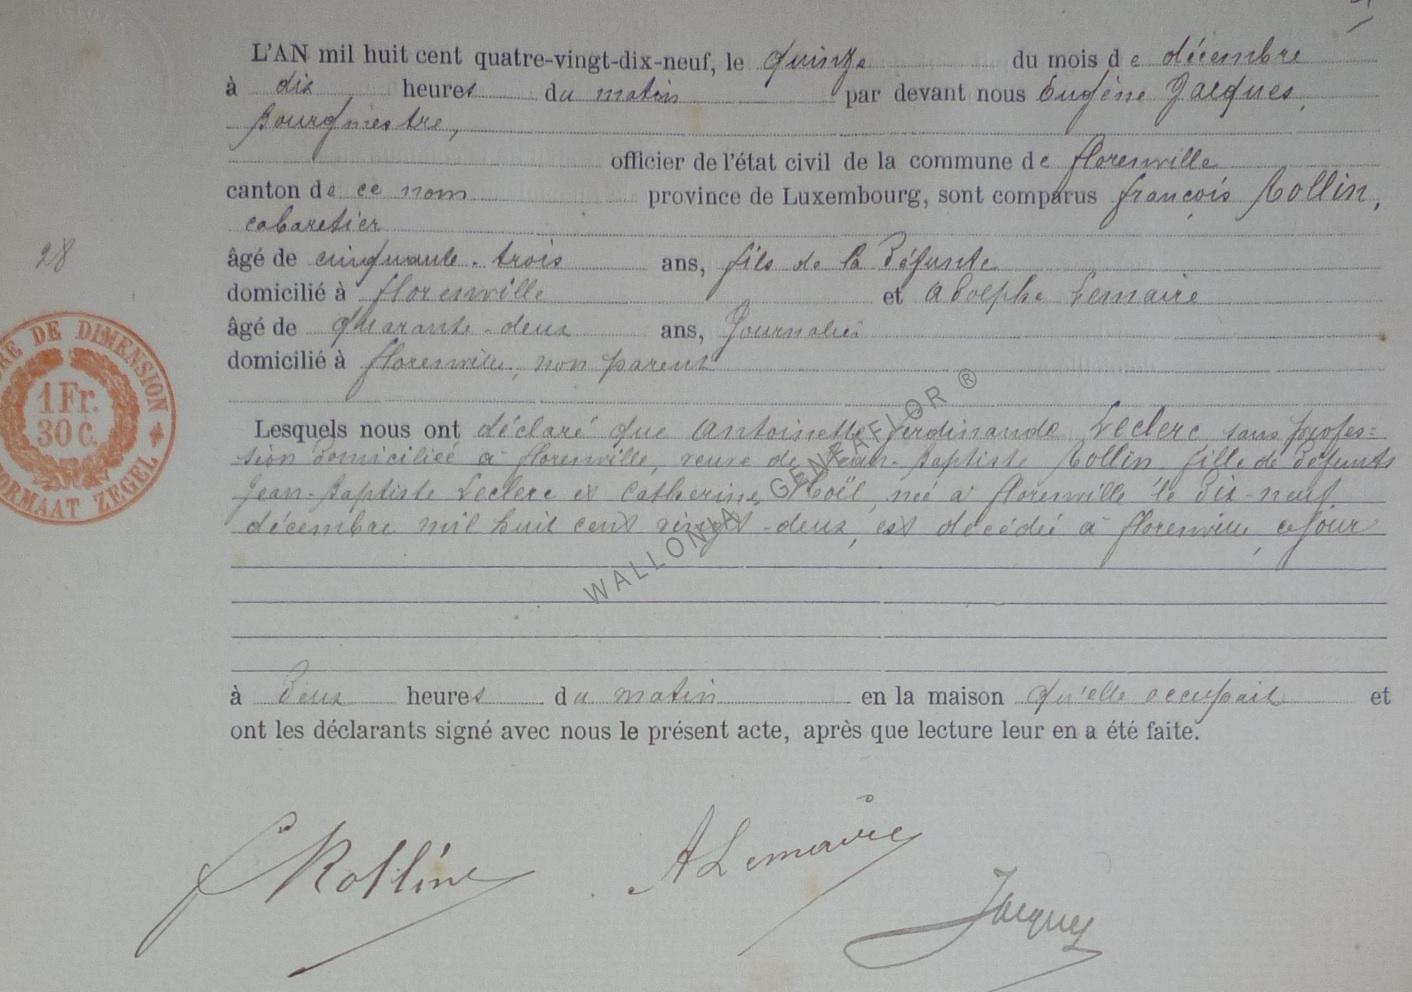 L'AN mil huit cent quatre-vingt-dix-neuf, le quinze du mois de décembre
à dix heures du matin par devant nous Eugène Jacques,
Bourgmestre,
officier de l'état civil de la commune de florenville
canton de ce nom province de Luxembourg, sont comparus françois Collin,
cabaretier
28
âgé de cinquante-trois ans, fils de la Défunte
domicilié à florenville et Adolphe Lemaire
âgé de quarante-deux ans, Journalier
domicilié à florenville, non parent
TIMBRE DE DIMENSION
1 Fr.
30 C.
FORMAAT ZEGEL
Lesquels nous ont déclaré que Antoinette ferdinande Leclerc sans profes=
sion domiciliée à florenville, veuve de Jean-Baptiste Collin fille de Défunts
Jean-Baptiste Leclerc et Catherine Noël, née à florenville le Dix-neuf
décembre mil huit cent vingt-deux, est décédée à florenville, ce jour
WALLONIA - GENEAFLOR ®
à Deux heures du matin en la maison qu'elle occupait et
ont les déclarants signé avec nous le présent acte, après que lecture leur en a été faite.
A Lemaire
Jacques